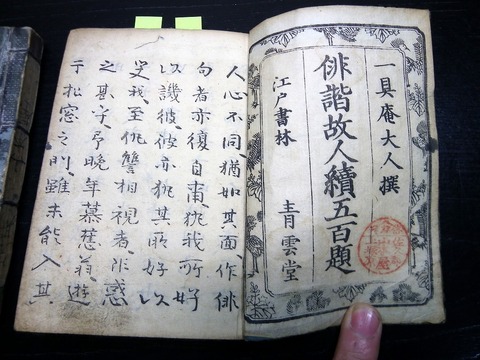 一具庵大人撰
俳諧故人續五百題
江戸書林
青雲堂
人心不同猶如其面作俳
句者亦復自南挑我所好
以譏彼彼亦挑其所好以
笑我至仇讐相視者
之甚乎予晩年慕蕉翁遊
于松窓之門雖未能入其